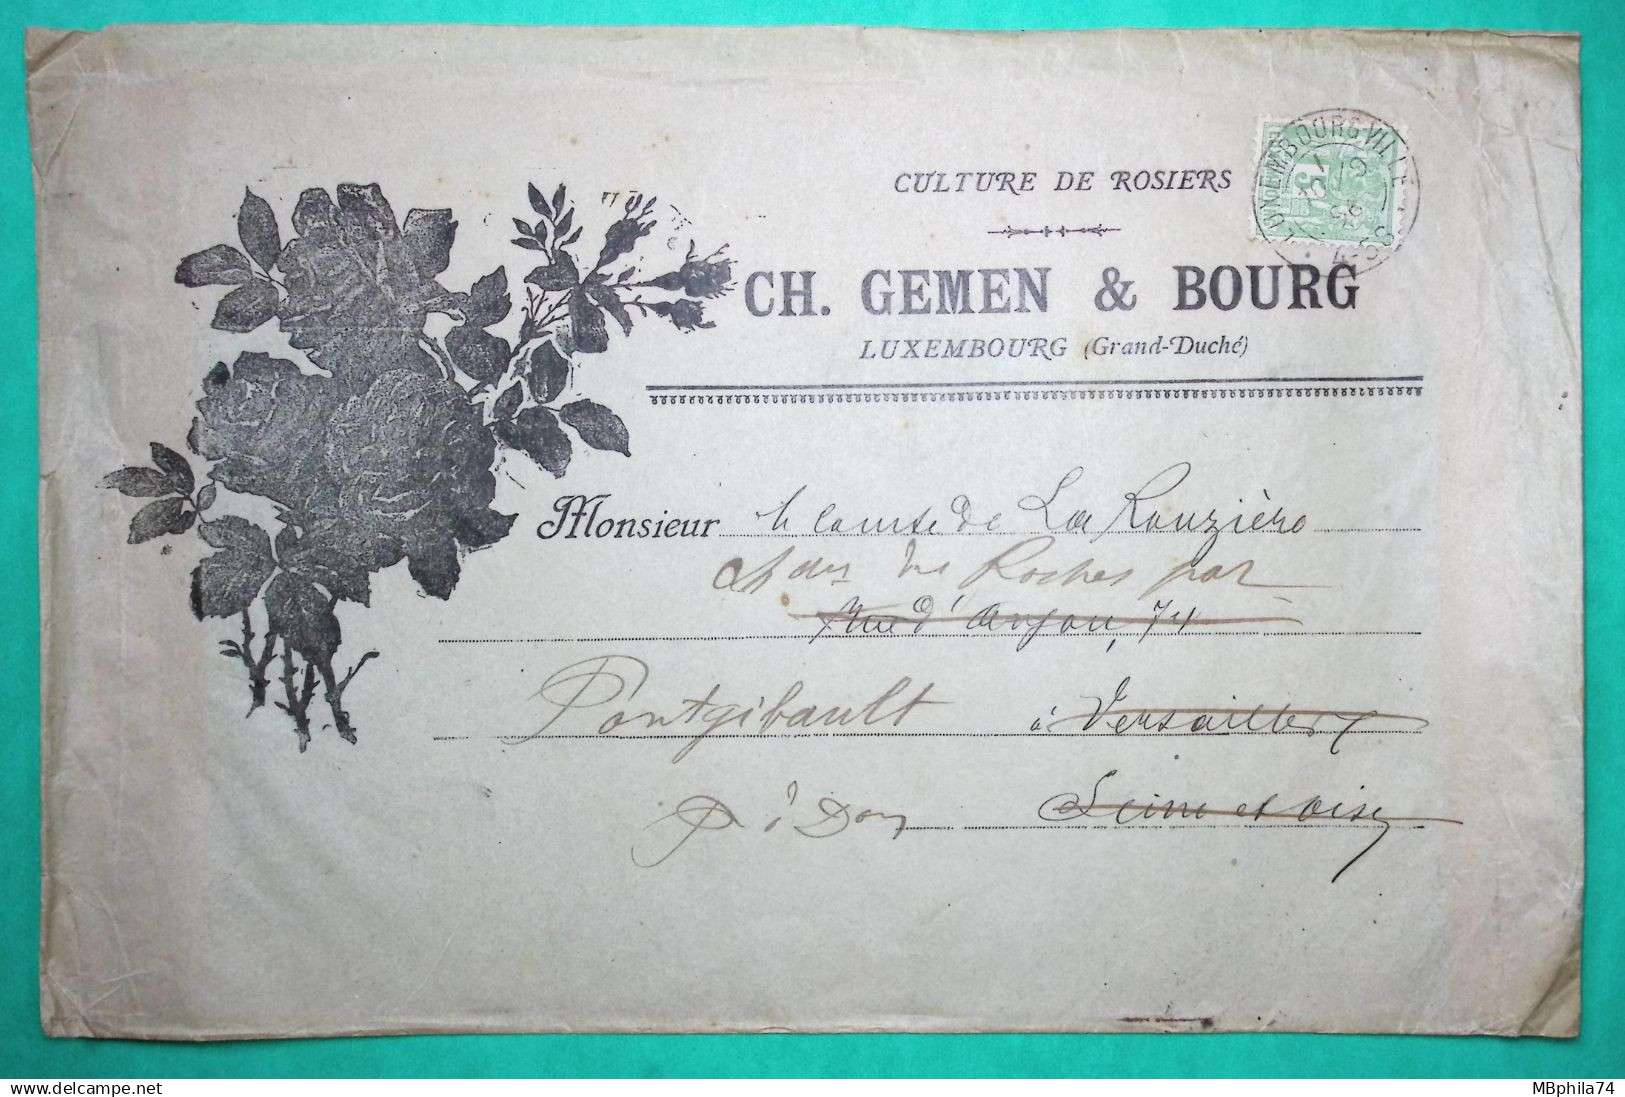 LUXEMBOURG VILLE
CULTURE DE ROSIERS
CH. GEMEN & BOURG
LUXEMBOURG (Grand-Duché)
Monsieur le comte de La Rouzière
des Roches par
Rue d'Anjou, 74
Pontgibault à Versailles
P. d Dom Seine et oise
delcampe.net
MBphila74